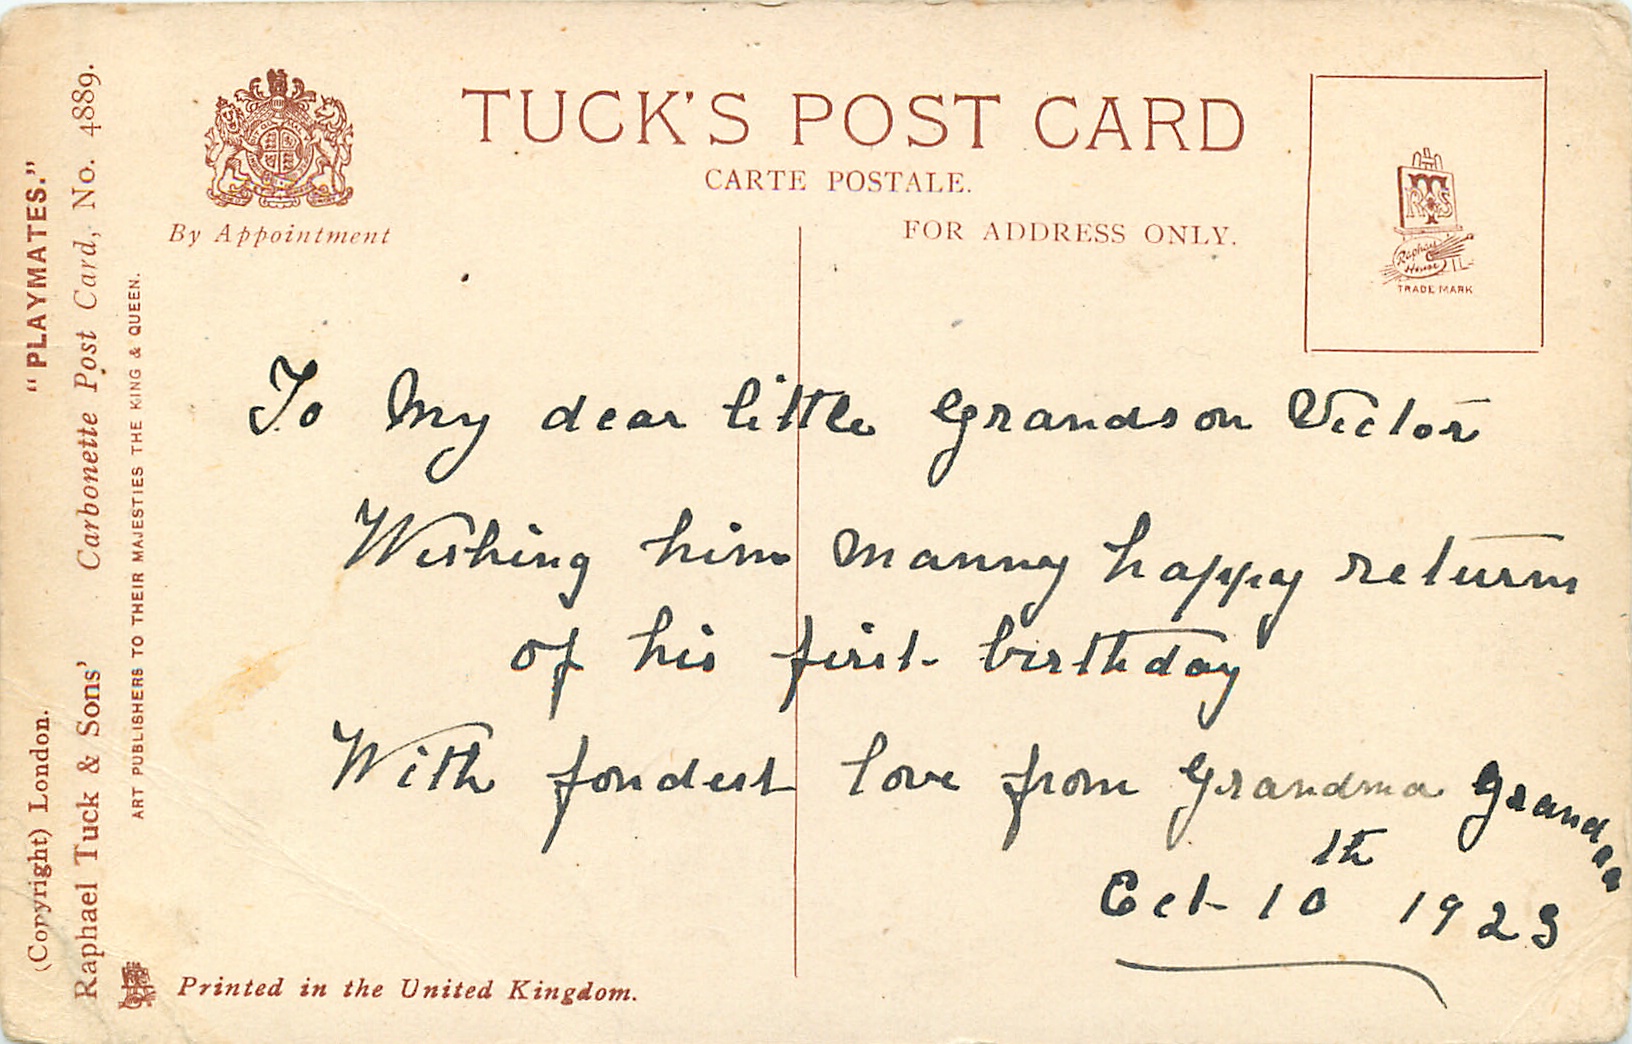 TUCK'S POST CARD
CARTE POSTALE.
By Appointment
FOR ADDRESS ONLY.
TRADE MARK
Raphael
House
To My dear little Grandson Victor
Wishing him manny happy returns
of his first birthday
With fondest love from Grandma Grandpa
Oct 10th 1923
Printed in the United Kingdom.
(Copyright) London. "PLAYMATES."
Raphael Tuck & Sons' Carbonette Post Card, No. 4889.
ART PUBLISHERS TO THEIR MAJESTIES THE KING & QUEEN.